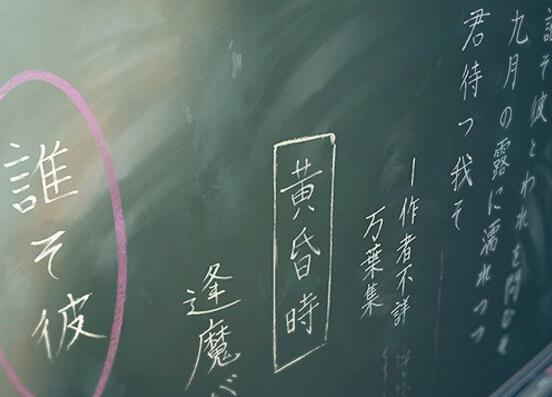 誰そ彼とわれを問ひそ
九月の露に濡れつつ
君待つ我そ
ー作者不詳
万葉集
黄昏時
逢魔が
誰そ彼